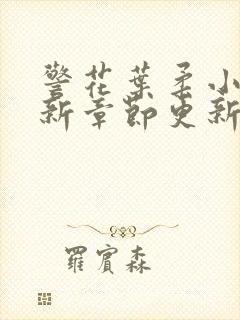 警花葉柔小
新章節更新
羅賓森